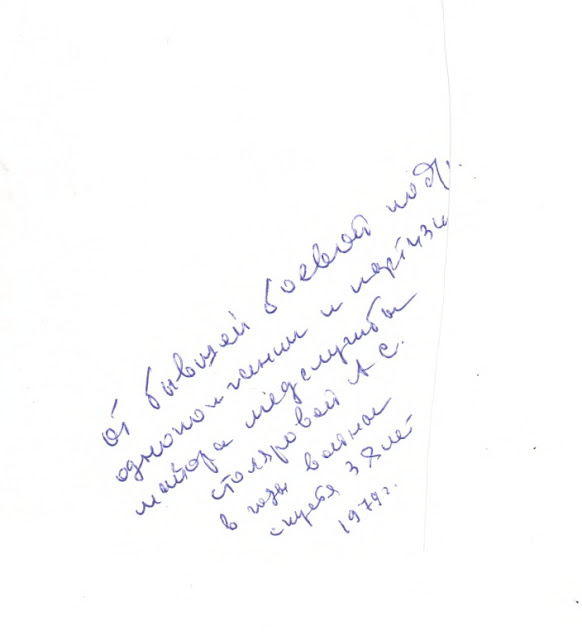 От бывшей боевой под.
однополчанки и партизан
майора медслужбы
столяровой А С.
в годы войны
спустя 38 лет
1979г.